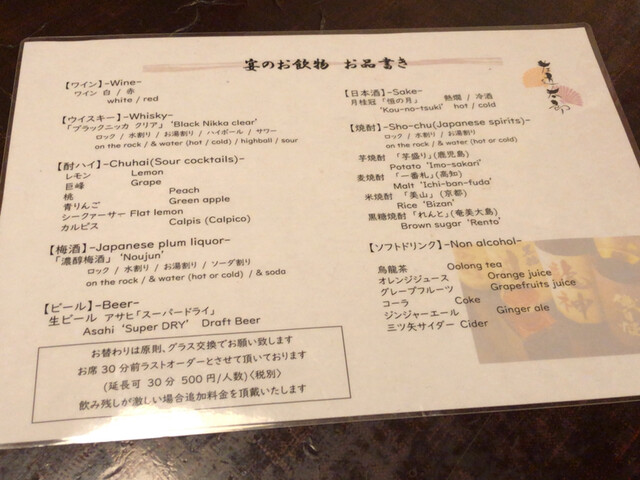 宴のお飲物 お品書き
【ワイン】-Wine-
ワイン 白 / 赤
white / red
【ウイスキー】-Whisky-
「ブラックニッカ クリア」 'Black Nikka clear'
ロック / 水割り / お湯割り / ハイボール / サワー
on the rock / & water (hot or cold) / highball / sour
【酎ハイ】-Chuhai(Sour cocktails)-
レモン Lemon
巨峰 Grape
桃 Peach
青りんご Green apple
シークァーサー Flat lemon
カルピス Calpis (Calpico)
【梅酒】-Japanese plum liquor-
「濃醇梅酒」 'Noujun'
ロック / 水割り / お湯割り / ソーダ割り
on the rock / & water (hot or cold) / & soda
【ビール】-Beer-
生ビール アサヒ「スーパードライ」
Asahi 'Super DRY' Draft Beer
お替わりは原則、グラス交換でお願い致します
お席 30 分前ラストオーダーとさせて頂いております
(延長可 30 分 500 円/人数)〈税別〉
飲み残しが激しい場合追加料金を頂戴いたします
【日本酒】-Sake-
月桂冠 「恒の月」 熱燗 / 冷酒
'Kou-no-tsuki' hot / cold
【焼酎】-Sho-chu(Japanese spirits)-
ロック / 水割り / お湯割り
on the rock / & water (hot or cold)
芋焼酎 「芋盛り」(鹿児島)
Potato 'Imo-sakari'
麦焼酎 「一番札」(高知)
Malt 'Ichi-ban-fuda'
米焼酎 「美山」(京都)
Rice 'Bizan'
黒糖焼酎 「れんと」(奄美大島)
Brown sugar 'Rento'
【ソフトドリンク】-Non alcohol-
烏龍茶 Oolong tea
オレンジジュース Orange juice
グレープフルーツ Grapefruits juice
コーラ Coke
ジンジャーエール Ginger ale
三ツ矢サイダー Cider